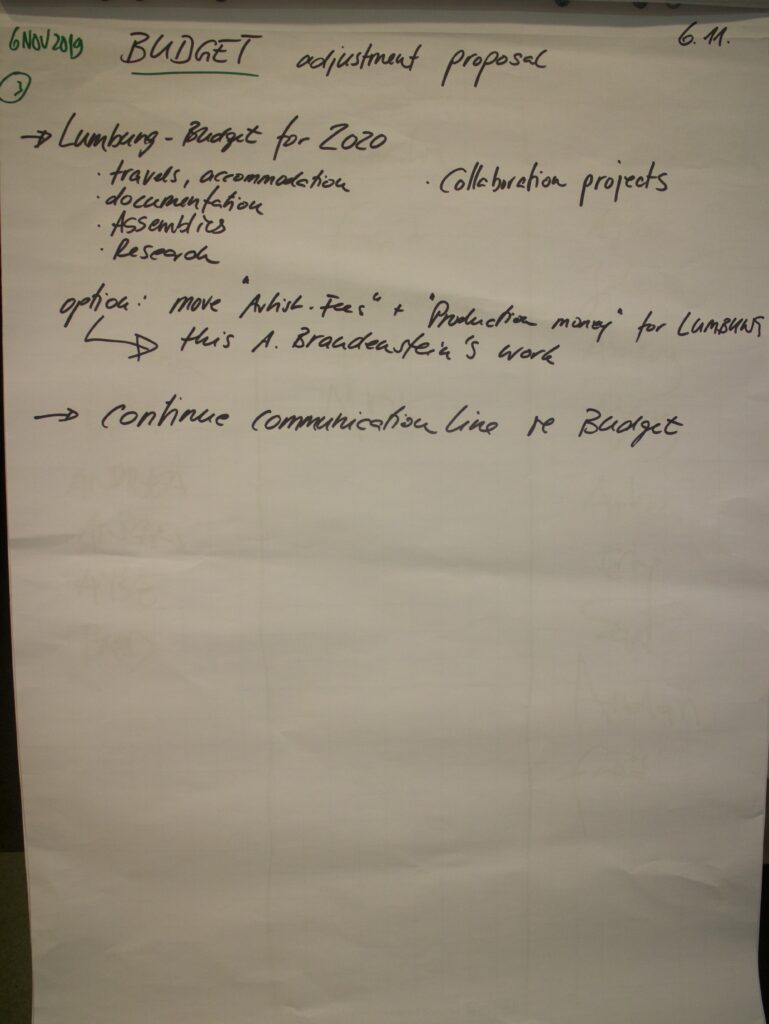 6 NOV 2019
BUDGET adjustment proposal
6.11.
3
→ Lumbung - Budget for 2020
· travels, accommodation
· documentation
· Assemblies
· Research
· Collaboration projects
option: move "Artist. Fees" + "Production money" for LUMBUNG
→ this A. Brandenstein's work
→ continue communication line re Budget